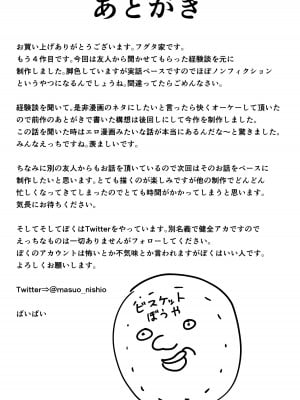 あとがき
お買い上げありがとうございます。フグタ家です。
もう４作目です。今回は友人から聞かせてもらった経験談を元に
制作しました。脚色していますが実話ベースですのでほぼノンフィクション
というやつになるんでしょうね。間違ってたらごめんなさい。
経験談を聞いて、是非漫画のネタにしたいと言ったら快くオーケーして頂いた
ので前作のあとがきで書いた構想は後回しにして今作を制作しました。
この話を聞いた時はエロ漫画みたいな話が本当にあるんだな～と驚きました。
みんなえっちですね。羨ましいです。
ちなみに別の友人からもお話を頂いているので次回はそのお話をベースに
制作したいと思います。とても描くのが楽しみですが他の制作でどんどん
忙しくなってきてしまったのでとても時間がかかってしまうと思います。
気長にお待ちください。
そしてそしてぼくはTwitterをやっています。別名義で健全アカですので
えっちなものは一切ありませんがフォローしてください。
ぼくのアカウントは怖いとか不気味とか言われますがぼくはいい人です。
よろしくお願いします。
Twitter⇒@masuo_nishio
ばいばい
ビスケット
ぼうや